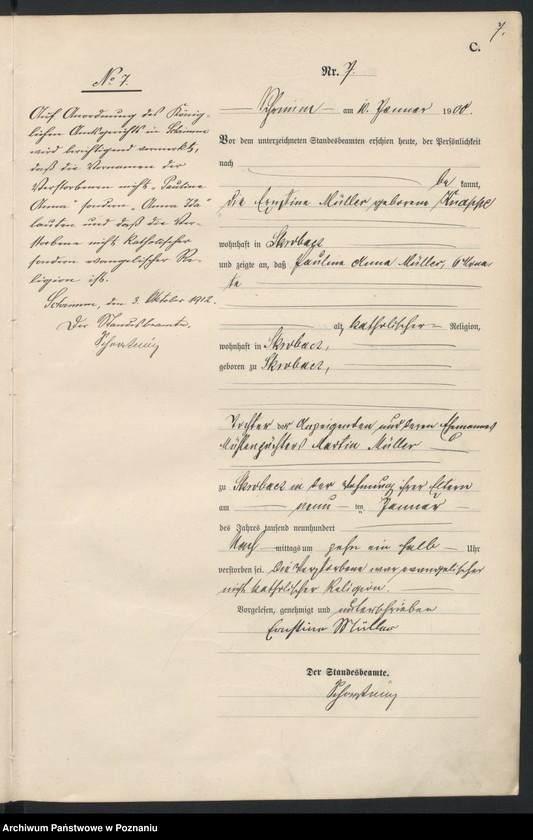 7.
C.
No 7.
Auf Anordnung des König-
lichen Amtsgerichts in Schrimm
wird berichtigend vermerkt,
daß die Vornamen der
Verstorbenen nicht „Pauline
Anna“ sondern „Anna Ida“
lauten und daß die Ver-
storbene nicht katholischer
sondern evangelischer Re-
ligion ist.
Schrimm, den 3. Oktober 1912.
Der Standesbeamte.
Nr. 7.
Schrimm am 10. Januar 1900.
Vor dem unterzeichneten Standesbeamten erschien heute, der Persönlichkeit
nach
be kannt,
die Ernstine Müller geborene
wohnhaft in
und zeigte an, daß Pauline Anna Müller, 6 Mona-
te
alt, katholischer Religion,
wohnhaft in
geboren zu
Tochter der Anzeigenden und deren Ehemannes
Mühlenpächters Martin Müller
zu in der Wohnung ihrer Eltern
am neun ten Januar
des Jahres tausend neunhundert
Nach mittags um zehn ein halb Uhr
verstorben sei. Die Verstorbene war evangelischer
nicht katholischer Religion.
Vorgelesen, genehmigt und unterschrieben
Ernstine Müller
Der Standesbeamte.
Archiwum Państwowe w Poznaniu